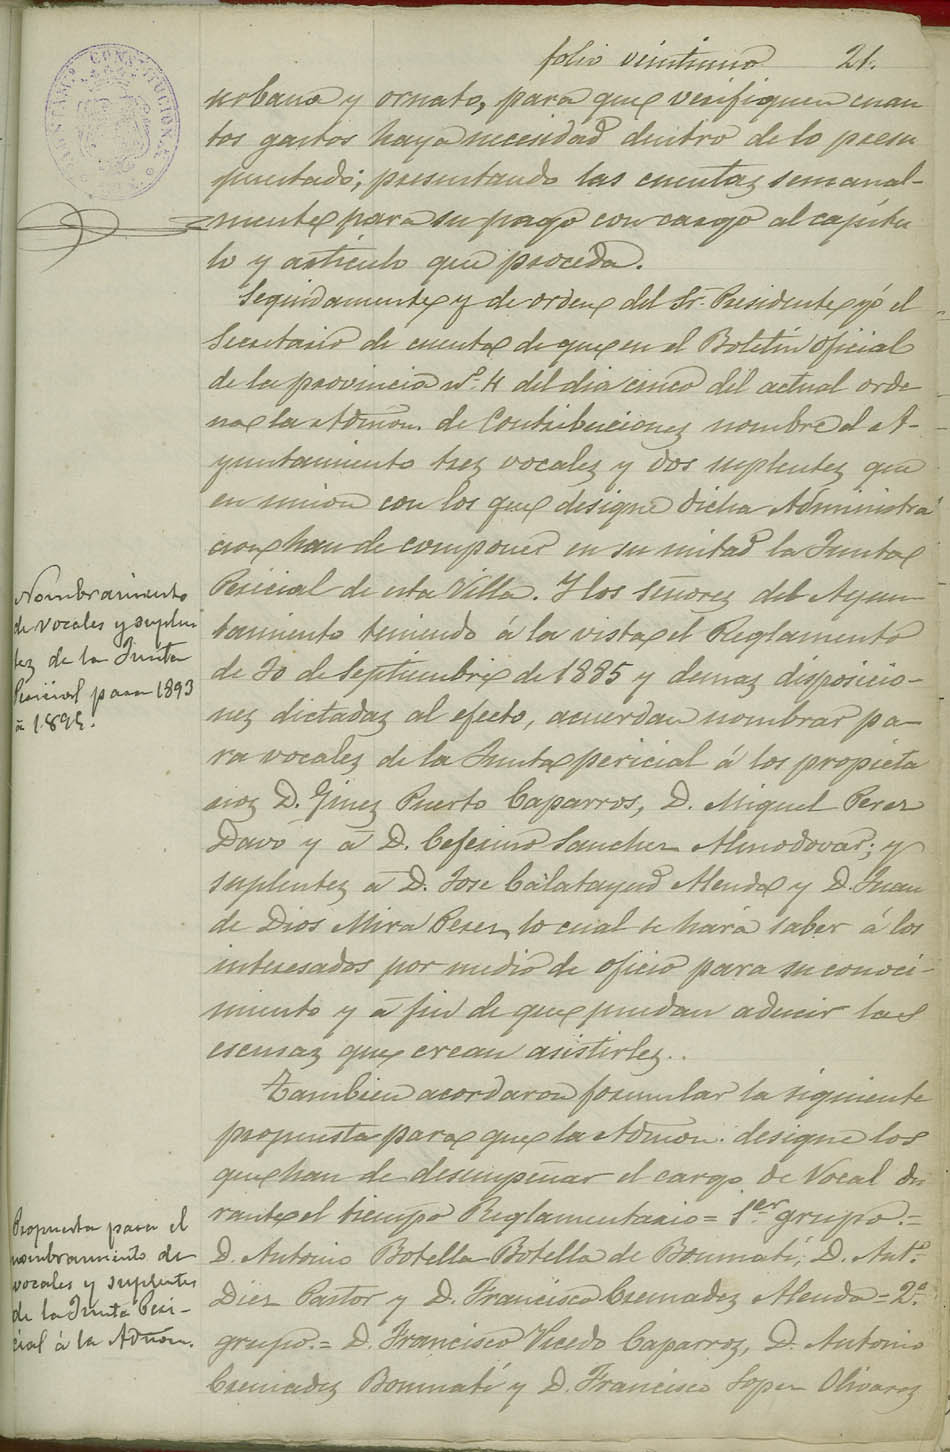 folio veintiuno 21.
urbana y ornato, para que verifiquen cuan
tos gastos haya necesidad dentro de lo presu
puestado; presentando las cuentas semanal-
mente para su pago con cargo al capitu
lo y artículo que proceda.
Seguidamente y de orden del Sr. Presidente yó el
Secretario dí cuenta de que en el Boletin oficial
de la provincia nº. 4 del dia cinco del actual orde
na la Admon. de Contribuciones nombre el A-
yuntamiento tres vocales y dos suplentes que
en union con los que designe dicha Administra
cion han de componer en su mitad la Junta
Pericial de esta Villa. Y los Señores del Ayun
tamiento teniendo á la vista el Reglamento
de 30 de Septiembre de 1885 y demas disposicio-
nes dictadas al efecto, acuerdan nombrar pa-
ra vocales de la Junta pericial á los propieta
rios D. Ginez Puerto Caparros, D. Miguel Perez
Davó y á D. Ceferino Sanchez Almodovar; y
suplentes á D. Jose Calatayud Alenda y D. Juan
de Dios Mira Perez, lo cual se hará saber á los
interesados por medio de oficio para su conoci-
miento y á fin de que puedan aducir las
escusas que crean asistirles..
Tambien acordaron formular la siguiente
propuesta para que la Admon. designe los
que han de desempeñar el cargo de Vocal du
rante el tiempo Reglamentario = 1er grupo.=
D. Antonio Botella Botella de Bonmatí, D. Antº.
Diez Pastor y D. Francisco Cremades Alenda = 2º.
grupo.= D. Francisco Vicedo Caparros, D. Antonio
Cremades Bonmatí y D. Francisco Lopez Olivares
Nombramiento
de vocales y suplen
tes de la Junta
Pericial para 1893
á 1895.
Propuesta para el
nombramiento de
vocales y suplentes
de la Junta Peri-
cial á la Admon.
CONSTITUCIONAL